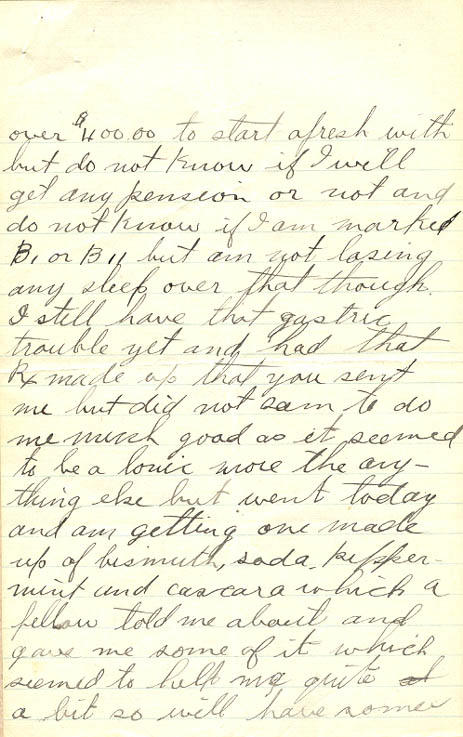 over $400.00 to start afresh with
but do not know if I will
get any pension or not and
do not know if I am marked
B1 or B11 but am not losing
any sleep over that though.
I still have that gastric
trouble yet and had that
Rx made up that you sent
me but did not seem to do
me much good as it seemed
to be a tonic more the any-
thing else but went today
and am getting one made
up of bismuth, soda, pepper-
mint and cascara which a
fellow told me about and
gave me some of it which
seemed to help me quite
a bit so will have some